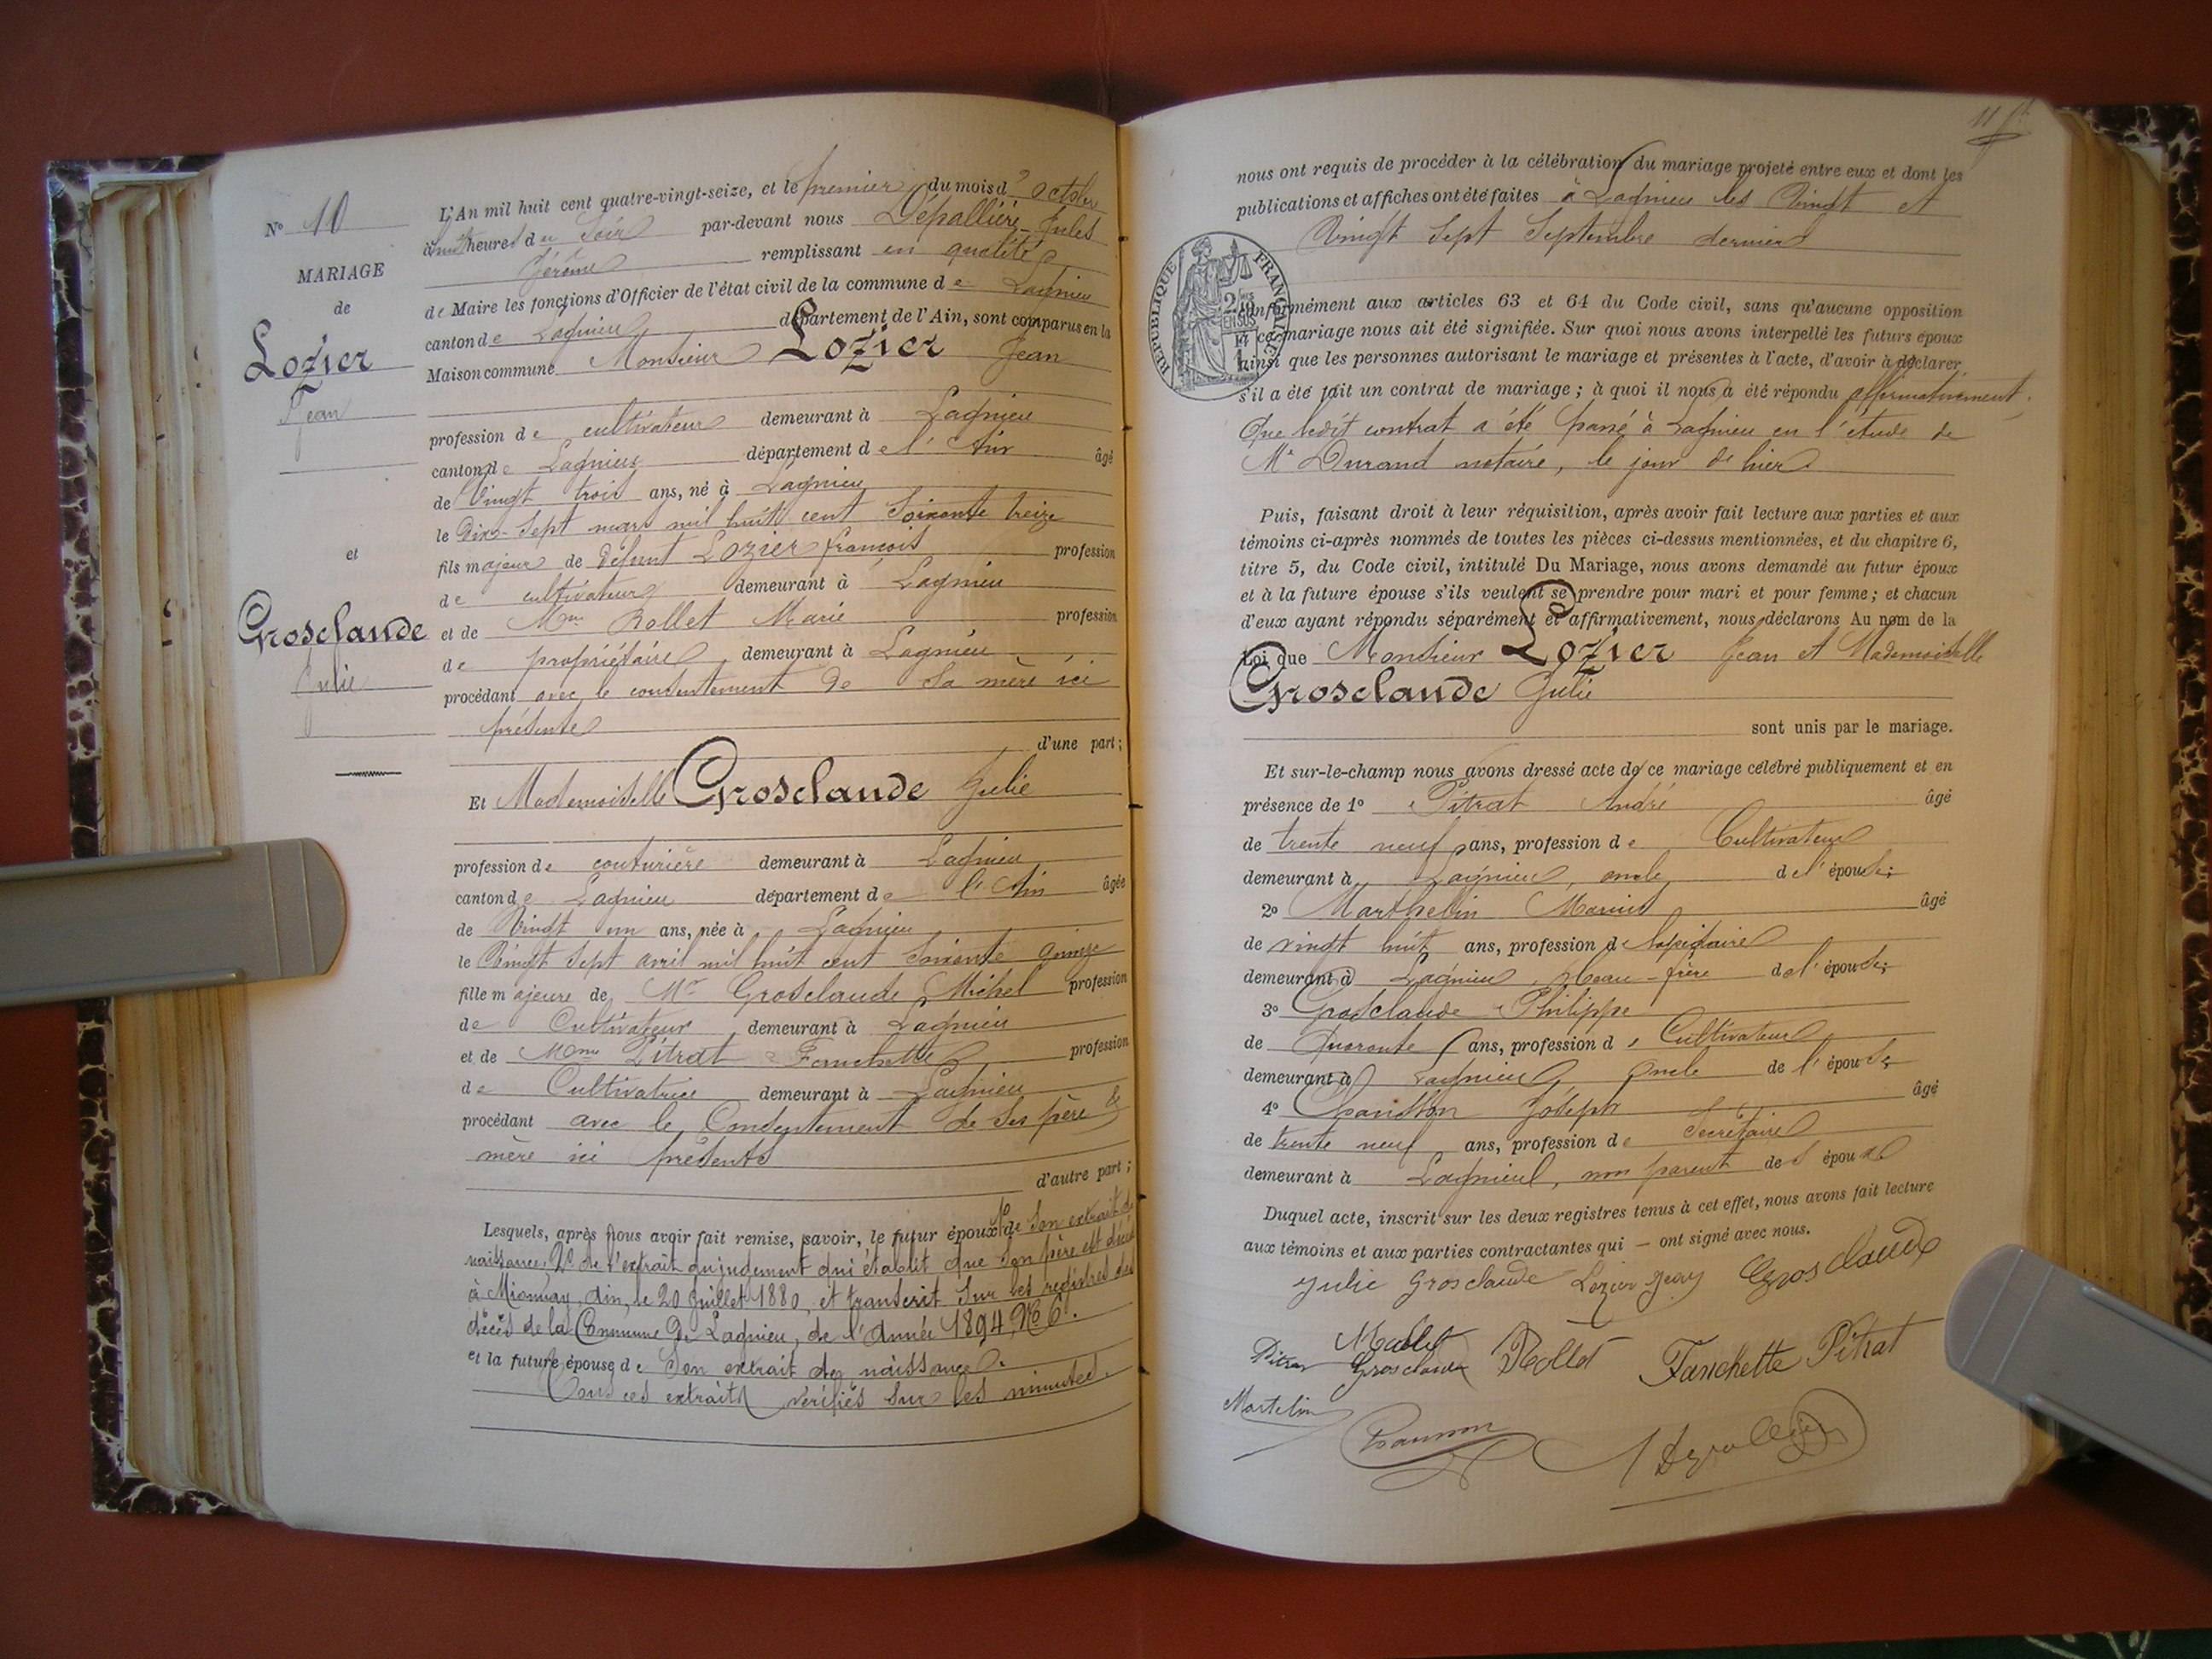 N° 10
MARIAGE
de
Lozier
Jean
et
Grosclaude
Julie
L'An mil huit cent quatre-vingt-seize, et le premier du mois d'octobre
à huit heures du Soir par-devant nous Dépallière Jules
Jérôme remplissant en qualité
de Maire les fonctions d'Officier de l'état civil de la commune de Lagnieu
canton de Lagnieu département de l'Ain, sont comparus en la
Maison commune Monsieur Lozier Jean
profession de cultivateur demeurant à Lagnieu
canton de Lagnieu département de l'Ain âgé
de Vingt trois ans, né à Lagnieu
le Dix-Sept mars mil huit cent Soixante treize
fils majeur de Défunt Lozier françois profession
de cultivateur demeurant à Lagnieu
et de Mme Rollet Marie profession
de propriétaire demeurant à Lagnieu
procédant avec le consentement de Sa mère ici
présente
d'une part;
Et Mademoiselle Grosclaude Julie
profession de couturière demeurant à Lagnieu
canton de Lagnieu département de l'Ain âgée
de Vingt un ans, née à Lagnieu
le Vingt Sept avril mil huit cent Soixante quinze
fille majeure de Mr Grosclaude Michel profession
de Cultivateur demeurant à Lagnieu
et de Mme Pitrat Fanchette profession
de Cultivatrice demeurant à Lagnieu
procédant avec le Consentement de Ses père &
mère ici présents
d'autre part;
Lesquels, après nous avoir fait remise, savoir, le futur époux 1° de Son extrait de
naissance, 2° de l'extrait du jugement qui établit que Son père est décédé
à Mionnay, Ain, le 20 Juillet 1880, et transcrit Sur les registres des
décès de la Commune de Lagnieu, de l'Année 1894, N° 6.
et la future épouse de Son extrait de naissance.
Tous ces extraits vérifiés Sur les minutes.
11
nous ont requis de procéder à la célébration du mariage projeté entre eux et dont les
publications et affiches ont été faites à Lagnieu les Vingt et
Vingt Sept Septembre dernier
REPUBLIQUE FRANÇAISE
conformément aux articles 63 et 64 du Code civil, sans qu'aucune opposition
à ce mariage nous ait été signifiée. Sur quoi nous avons interpellé les futurs époux
ainsi que les personnes autorisant le mariage et présentes à l'acte, d'avoir à déclarer
s'il a été fait un contrat de mariage; à quoi il nous a été répondu affirmativement.
Que ledit contrat a été passé à Lagnieu en l'étude de
Me Durand notaire, le jour de hier
Puis, faisant droit à leur réquisition, après avoir fait lecture aux parties et aux
témoins ci-après nommés de toutes les pièces ci-dessus mentionnées, et du chapitre 6,
titre 5, du Code civil, intitulé Du Mariage, nous avons demandé au futur époux
et à la future épouse s'ils veulent se prendre pour mari et pour femme; et chacun
d'eux ayant répondu séparément et affirmativement, nous déclarons Au nom de la
Loi que Monsieur Lozier Jean et Mademoiselle
Grosclaude Julie
sont unis par le mariage.
Et sur-le-champ nous avons dressé acte de ce mariage célébré publiquement et en
présence de 1° Pitrat André âgé
de trente neuf ans, profession de Cultivateur
demeurant à Lagnieu, oncle de l'épouse;
2° Marthelin Marius âgé
de vingt huit ans, profession de lapidaire
demeurant à Lagnieu, beau-frère de l'épouse;
3° Grosclaude Philippe
de Quarante ans, profession de Cultivateur
demeurant à Lagnieu Oncle de l'épouse;
4° Joseph âgé
de trente neuf ans, profession de Secrétaire
demeurant à Lagnieu, non parent des époux
Duquel acte, inscrit sur les deux registres tenus à cet effet, nous avons fait lecture
aux témoins et aux parties contractantes qui – ont signé avec nous.
Julie Grosclaude Lozier Jean Grosclaude
Pitrat Grosclaude Rollet Fanchette Pitrat
Martelin